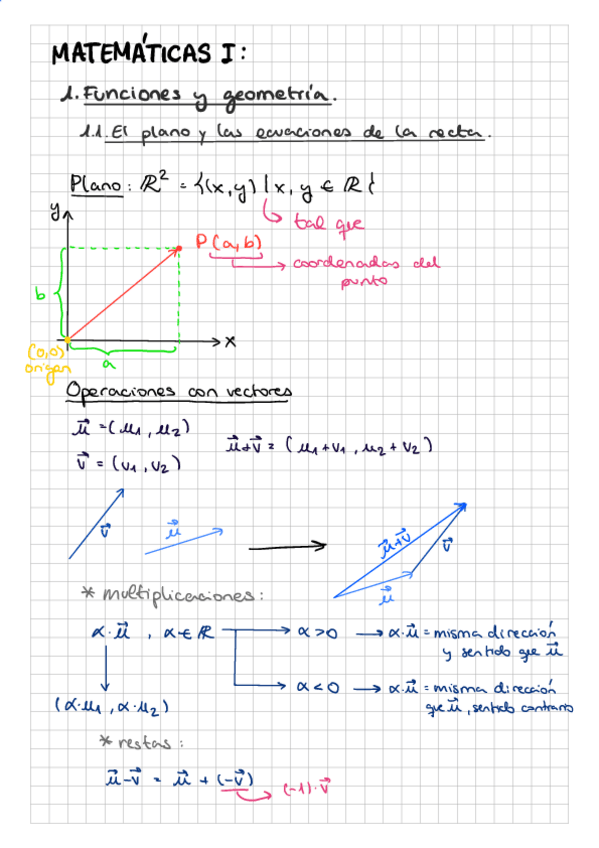 MATEMÁTICAS I:
1. Funciones y geometría.
1.1. El plano y las ecuaciones de la recta.
Plano: ℝ² = {(x,y) | x, y ∈ ℝ}
tal que
y
P(a,b)
coordenadas del
punto
b
x
(0,0)
origen
a
Operaciones con vectores
u⃗ = (u₁, u₂)
v⃗ = (v₁, v₂)
u⃗+v⃗ = (u₁+v₁, u₂+v₂)
v⃗
u⃗
u⃗+v⃗
v⃗
u⃗
* multiplicaciones:
α·u⃗, α ∈ ℝ → α>0 → α·u⃗ = misma dirección
y sentido que u⃗
α<0 → α·u⃗ = misma dirección
que u⃗, sentido contrario
(α·u₁, α·u₂)
* restas:
u⃗-v⃗ = u⃗ + (-v⃗)
(-1)·v⃗